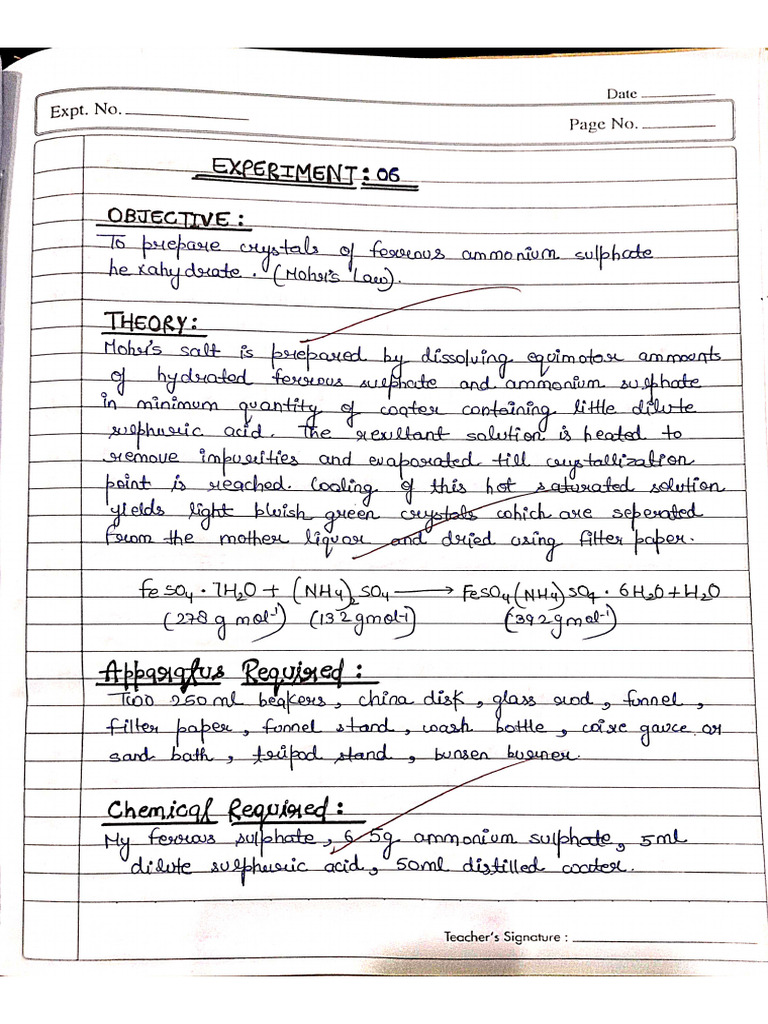 Date
Expt. No.
Page No.
EXPERIMENT: 06
OBJECTIVE:
To prepare crystals of ferrous ammonium sulphate
hexahydrate. (Mohr's Law).
THEORY:
Mohr's salt is prepared by dissolving equimotar ammounts
of hydrated ferrous sulphate and ammonium sulphate
in minimum quantity of water containing little dilute
sulphuric acid. The resultant solution is heated to
remove impurities and evaporated till crystallization
point is reached. Cooling of this hot saturated solution
yields light bluish green crystals which are seperated
from the mother liquor and dried using filter paper.
FeSO4 · 7H2O + (NH4)2 SO4 → FeSO4(NH4)SO4 · 6H2O + H2O
(278 g mol-1) (132 gmol-1) (392 gmol-1)
Apparatus Required:
Two 250 ml beakers, china disk, glass rod, funnel,
filter paper, funnel stand, wash bottle, wire gauce or
sand bath, tripod stand, bunsen burner.
Chemical Required:
My ferrous sulphate, 6.5g ammonium sulphate, 5ml
dilute sulphuric acid, 50ml distilled water.
Teacher's Signature :